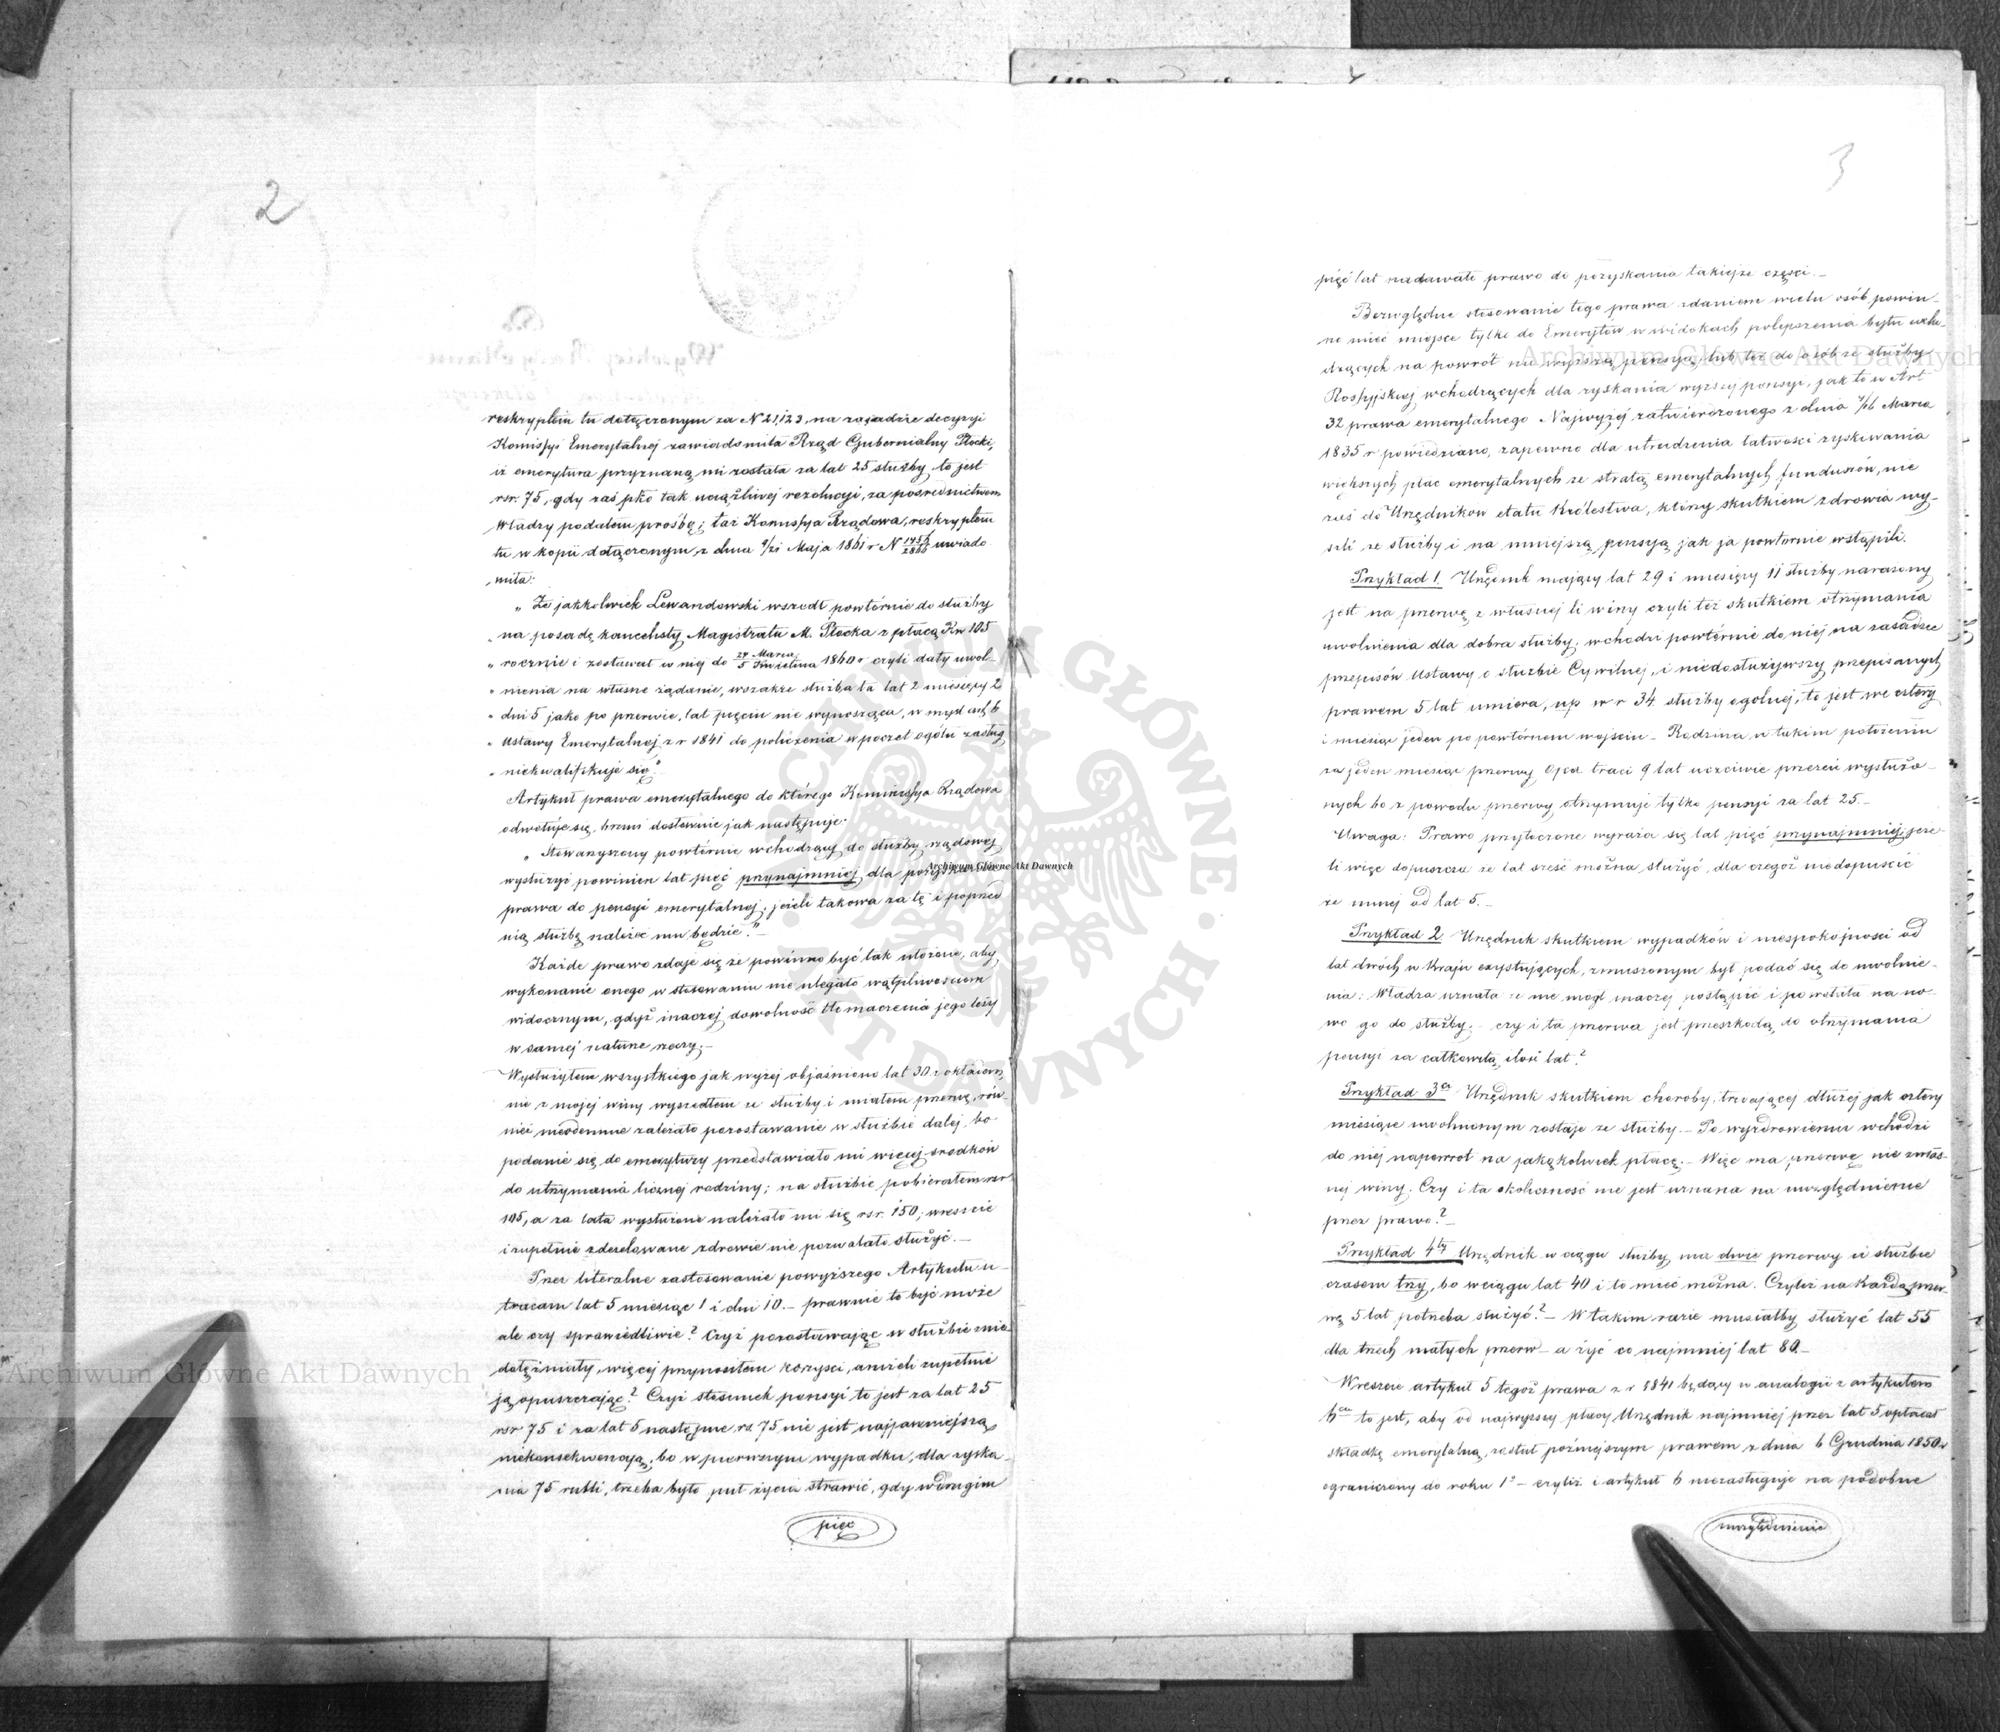 2
reskryptem tu dołączonym za N 21,123, na zasadzie decyzyi
Komissyi Emerytalnej zawiadomiła Rząd Gubernialny Płocki,
iż emerytura przyznaną mi została za lat 25 służby, to jest
rsr. 75, gdy zaś pko tak uciążliwej rezolucyi, za pośrednictwem
Władzy podałem prośbę; taż Komissya Rządowa, reskryptem
tu w kopii dołączonym z dnia 9/21 Maja 1861 r N uwiado
miła:
„ Że jakkolwiek Lewandowski wszedł powtórnie do służby
„ na posadę kancelisty Magistratu M. Płocka z płacą Rsr 105
„ rocznie i zostawał w niej do 24 Marca / 5 Kwietnia 1860 r czyli daty uwol-
„ nienia na własne żądanie, wszakże służba ta lat 2 miesięcy 2
„ dni 5 jako po przerwie, lat pięciu nie wynosząca, w myśl art 6
„ Ustawy Emerytalnej z r 1841 do policzenia w poczet ogółu zasług
„ niekwalifikuje się."
Artykuł prawa emerytalnego do którego Kommissya Rządowa
odwołuje się, brzmi dosłownie jak następuje:
„ Stowarzyszony powtórnie wchodzący do służby rządowej
wysłużyć powinien lat pięć przynajmniej dla pozyskania
prawa do pensyi emerytalnej, jeżeli takowa za tę i poprzed
nią służbę należeć mu będzie."–
Każde prawo zdaje się że powinno być tak ułożone, aby
wykonanie onego w stosowaniu nie ulegało wątpliwościom
widocznym, gdyż inaczej dowolność tłomaczenia jego leży
w samej naturze rzeczy.–
Wysłużyłem wszystkiego jak wyżej objaśniono lat 30 z okładem,
nie z mojej winy wyszedłem ze służby i miałem przerwę, rów-
nież nieodemnie zależało pozostawanie w służbie dalej, bo
podanie się do emerytury przedstawiało mi więcej srodków
do utrzymania licznej rodziny; na służbie pobierałem rsr
105, a za lata wysłużone należało mi się rsr. 150; wreszcie
i zupełnie zdezelowane zdrowie nie pozwalało służyć.–
Przez literalne zastosowanie powyższego Artykułu u-
tracam lat 5 miesiąc 1 i dni 10.– prawnie to być może
ale czy sprawiedliwie? Czyż pozostawając w służbie nie
dołężniały, więcej przynosiłem korzyści, aniżeli zupełnie
ją opuszczając? Czyż stosunek pensyi to jest za lat 25
rsr 75 i za lat 5 następne rs. 75 nie jest najjawniejszą
niekonsekwencyą, bo w pierwszym wypadku, dla zyska-
nia 75 rubli, trzeba było pół życia strawić, gdy w drugim
pięć
3
pięć lat nadawało prawo do pozyskania takiejże części.–
Bezwzględne stosowanie tego prawa zdaniem wielu osób powin-
no mieć miejsce tylko do Emerytów w widokach polepszenia bytu wcho-
dzących na powrót na wyższą pensyą, lub też do osób ze służby
Rossyjskiej wchodzących dla zyskania wyższej pensyi, jak to w Art
32 prawa emerytalnego Najwyżej zatwierdzonego z dnia 4/16 Marca
1835 r powiedziano, zapewne dla utrudzenia łatwości zyskiwania
większych płac emerytalnych ze stratą emerytalnych funduszów, nie
zaś do Urzędników etatu Królestwa, którzy skutkiem zdrowia wy-
szli ze służby i na mniejszą pensyą jak ja powtórnie wstąpili.
Przykład 1. Urzędnik mający lat 29 i miesięcy 11 służby narażony
jest na przerwę z własnej li winy czyli też skutkiem otrzymania
uwolnienia dla dobra służby; wchodzi powtórnie do niej na zasadzie
przepisów Ustawy o służbie Cywilnej, i niedosłużywszy przepisanych
prawem 5 lat umiera, np w r 34 służby ogólnej, to jest we cztery
i miesiąc jeden po powtórnem wejściu – Rodzina w takim położeniu
za jeden miesiąc przerwy Ojca traci 9 lat uczciwie przezeń wysłużo-
nych bo z powodu przerwy otrzymuje tylko pensyi za lat 25.–
Uwaga: Prawo przytoczone wyraża się lat pięć przynajmniej, jeże-
li więc dopuszcza że lat sześć można służyć, dla czegoż niedopuścić
że mniej od lat 5.–
Przykład 2 Urzędnik skutkiem wypadków i niespokojności od
lat dwóch w Kraju exystujących, zmuszonym był podać się do uwolnie-
nia: Władza uznała że nie mógł inaczej postąpić i powołała na no-
wo go do służby.– czy i ta przerwa jest przeszkodą do otrzymania
pensyi za całkowitą ilość lat?
Przykład 3ci Urzędnik skutkiem choroby, trwającej dłużej jak cztery
miesiące uwolnionym zostaje ze służby.– Po wyzdrowieniu wchodzi
do niej napowrót na jakąkolwiek płacę.– Więc ma przerwę nie z włas-
nej winy. Czy i ta okoliczność nie jest uznana na uwzględnienie
przez prawo?–
Przykład 4ty Urzędnik w ciągu służby ma dwie przerwy w służbie
czasem trzy, bo w ciągu lat 40 i to mieć można. Czyliż na każdą przer-
wę 5 lat potrzeba służyć?– W takim razie musiałby służyć lat 55
dla trzech małych przerw – a żyć co najmniej lat 80.–
Wreszcie artykuł 5 tegoż prawa z r 1841 będący w analogii z artykułem
6m to jest, aby od najwyższej płacy Urzędnik najmniej przez lat 5 opłacał
składkę emerytalną, został późniejszym prawem z dnia 6 Grudnia 1850 r
ograniczony do roku 1o – czyliż i artykuł 6 niezasługuje na podobne
uwzględnienie
Archiwum Główne Akt Dawnych
Archiwum Główne Akt Dawnych
Archiwum Główne Akt Dawnych
ARCHIWUM GŁÓWNE AKT DAWNYCH